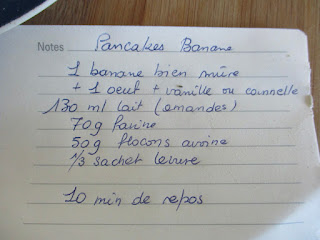 Notes Pancakes Banane
1 banane bien mûre
+ 1 oeuf + vanille ou cannelle
130 ml lait (amandes)
70g farine
50g flocons avoine
1/3 sachet levure
10 min de repos